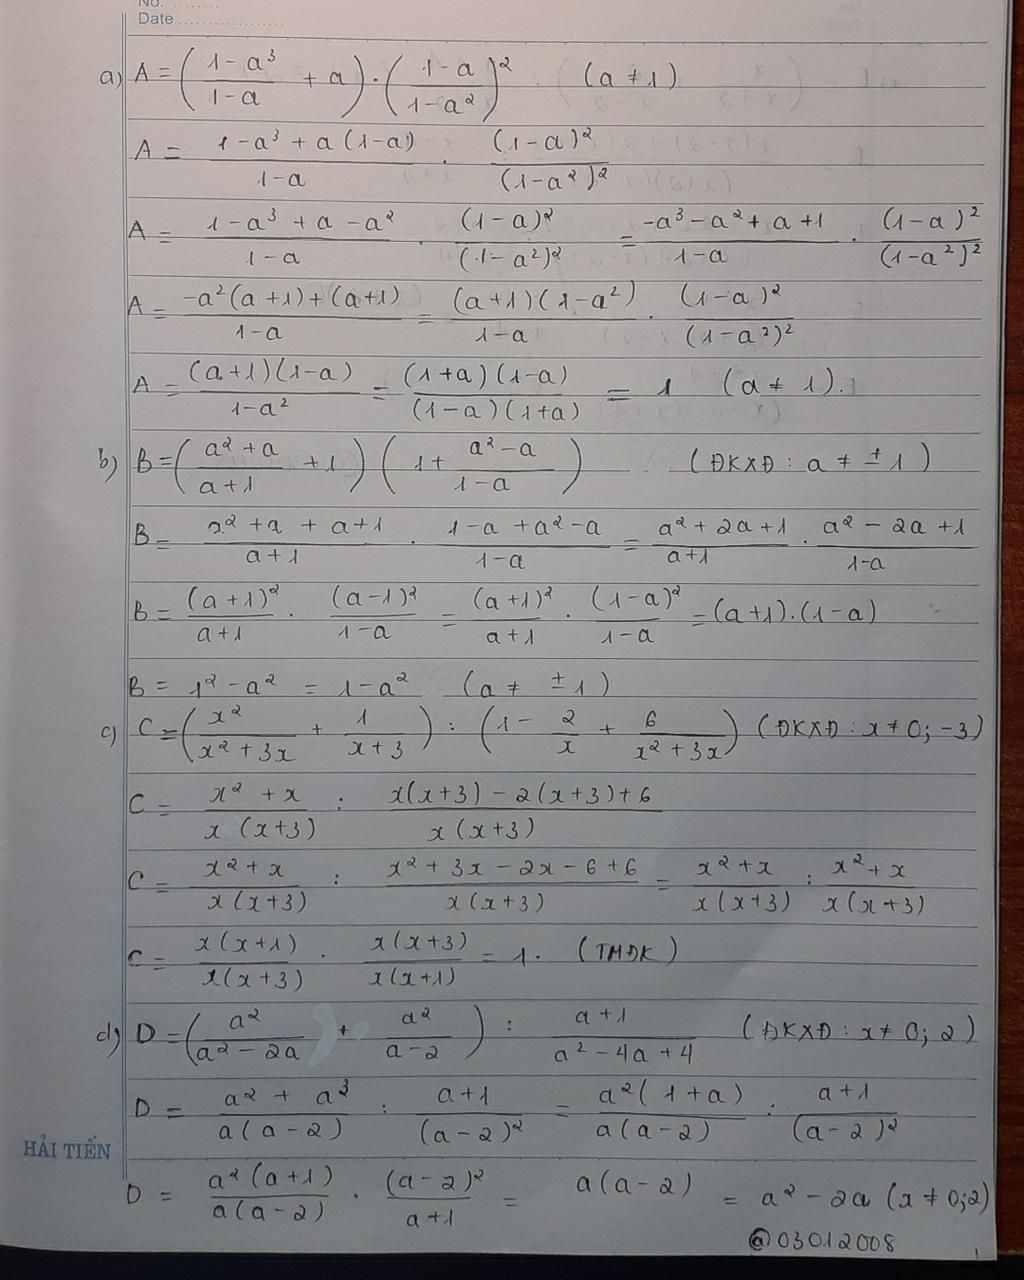 No. ........
Date ..................
a) A = ( (1 - a³)/(1 - a) + a ) . ( (1 - a)/(1 - a²) )² (a ≠ 1)
A = (1 - a³ + a (1 - a))/(1 - a) . (1 - a)²/(1 - a²)²
A = (1 - a³ + a - a²)/(1 - a) . (1 - a)²/(1 - a²)² = (-a³ - a² + a + 1)/(1 - a) . (1 - a)²/(1 - a²)²
A = (-a²(a + 1) + (a + 1))/(1 - a) = ((a + 1)(1 - a²))/(1 - a) . (1 - a)²/(1 - a²)²
A = ((a + 1)(1 - a))/(1 - a²) = ((1 + a)(1 - a))/((1 - a)(1 + a)) = 1 (a ≠ 1).
b) B = ( (a² + a)/(a + 1) + 1 ) ( 1 + (a² - a)/(1 - a) ) (ĐKXĐ : a ≠ ± 1)
B = (a² + a + a + 1)/(a + 1) . (1 - a + a² - a)/(1 - a) = (a² + 2a + 1)/(a + 1) . (a² - 2a + 1)/(1 - a)
B = (a + 1)²/(a + 1) . (a - 1)²/(1 - a) = (a + 1)²/(a + 1) . (1 - a)²/(1 - a) = (a + 1).(1 - a)
B = 1² - a² = 1 - a² (a ≠ ± 1)
c) C = ( x²/(x² + 3x) + 1/(x + 3) ) : ( 1 - 2/x + 6/(x² + 3x) ) (ĐKXĐ : x ≠ 0; -3)
C = (x² + x)/(x (x + 3)) : (x(x + 3) - 2(x + 3) + 6)/(x (x + 3))
C = (x² + x)/(x (x + 3)) : (x² + 3x - 2x - 6 + 6)/(x (x + 3)) = (x² + x)/(x (x + 3)) : (x² + x)/(x (x + 3))
C = (x(x + 1))/(x(x + 3)) . (x(x + 3))/(x(x + 1)) = 1. (TMĐK)
d) D = ( a²/(a² - 2a) + a²/(a - 2) ) : (a + 1)/(a² - 4a + 4) (ĐKXĐ : x ≠ 0; 2)
D = (a² + a³)/(a (a - 2)) : (a + 1)/(a - 2)² = (a² (1 + a))/(a (a - 2)) : (a + 1)/(a - 2)²
HẢI TIẾN
D = (a² (a + 1))/(a (a - 2)) . (a - 2)²/(a + 1) = a (a - 2) = a² - 2a (x ≠ 0; 2)
@03012008